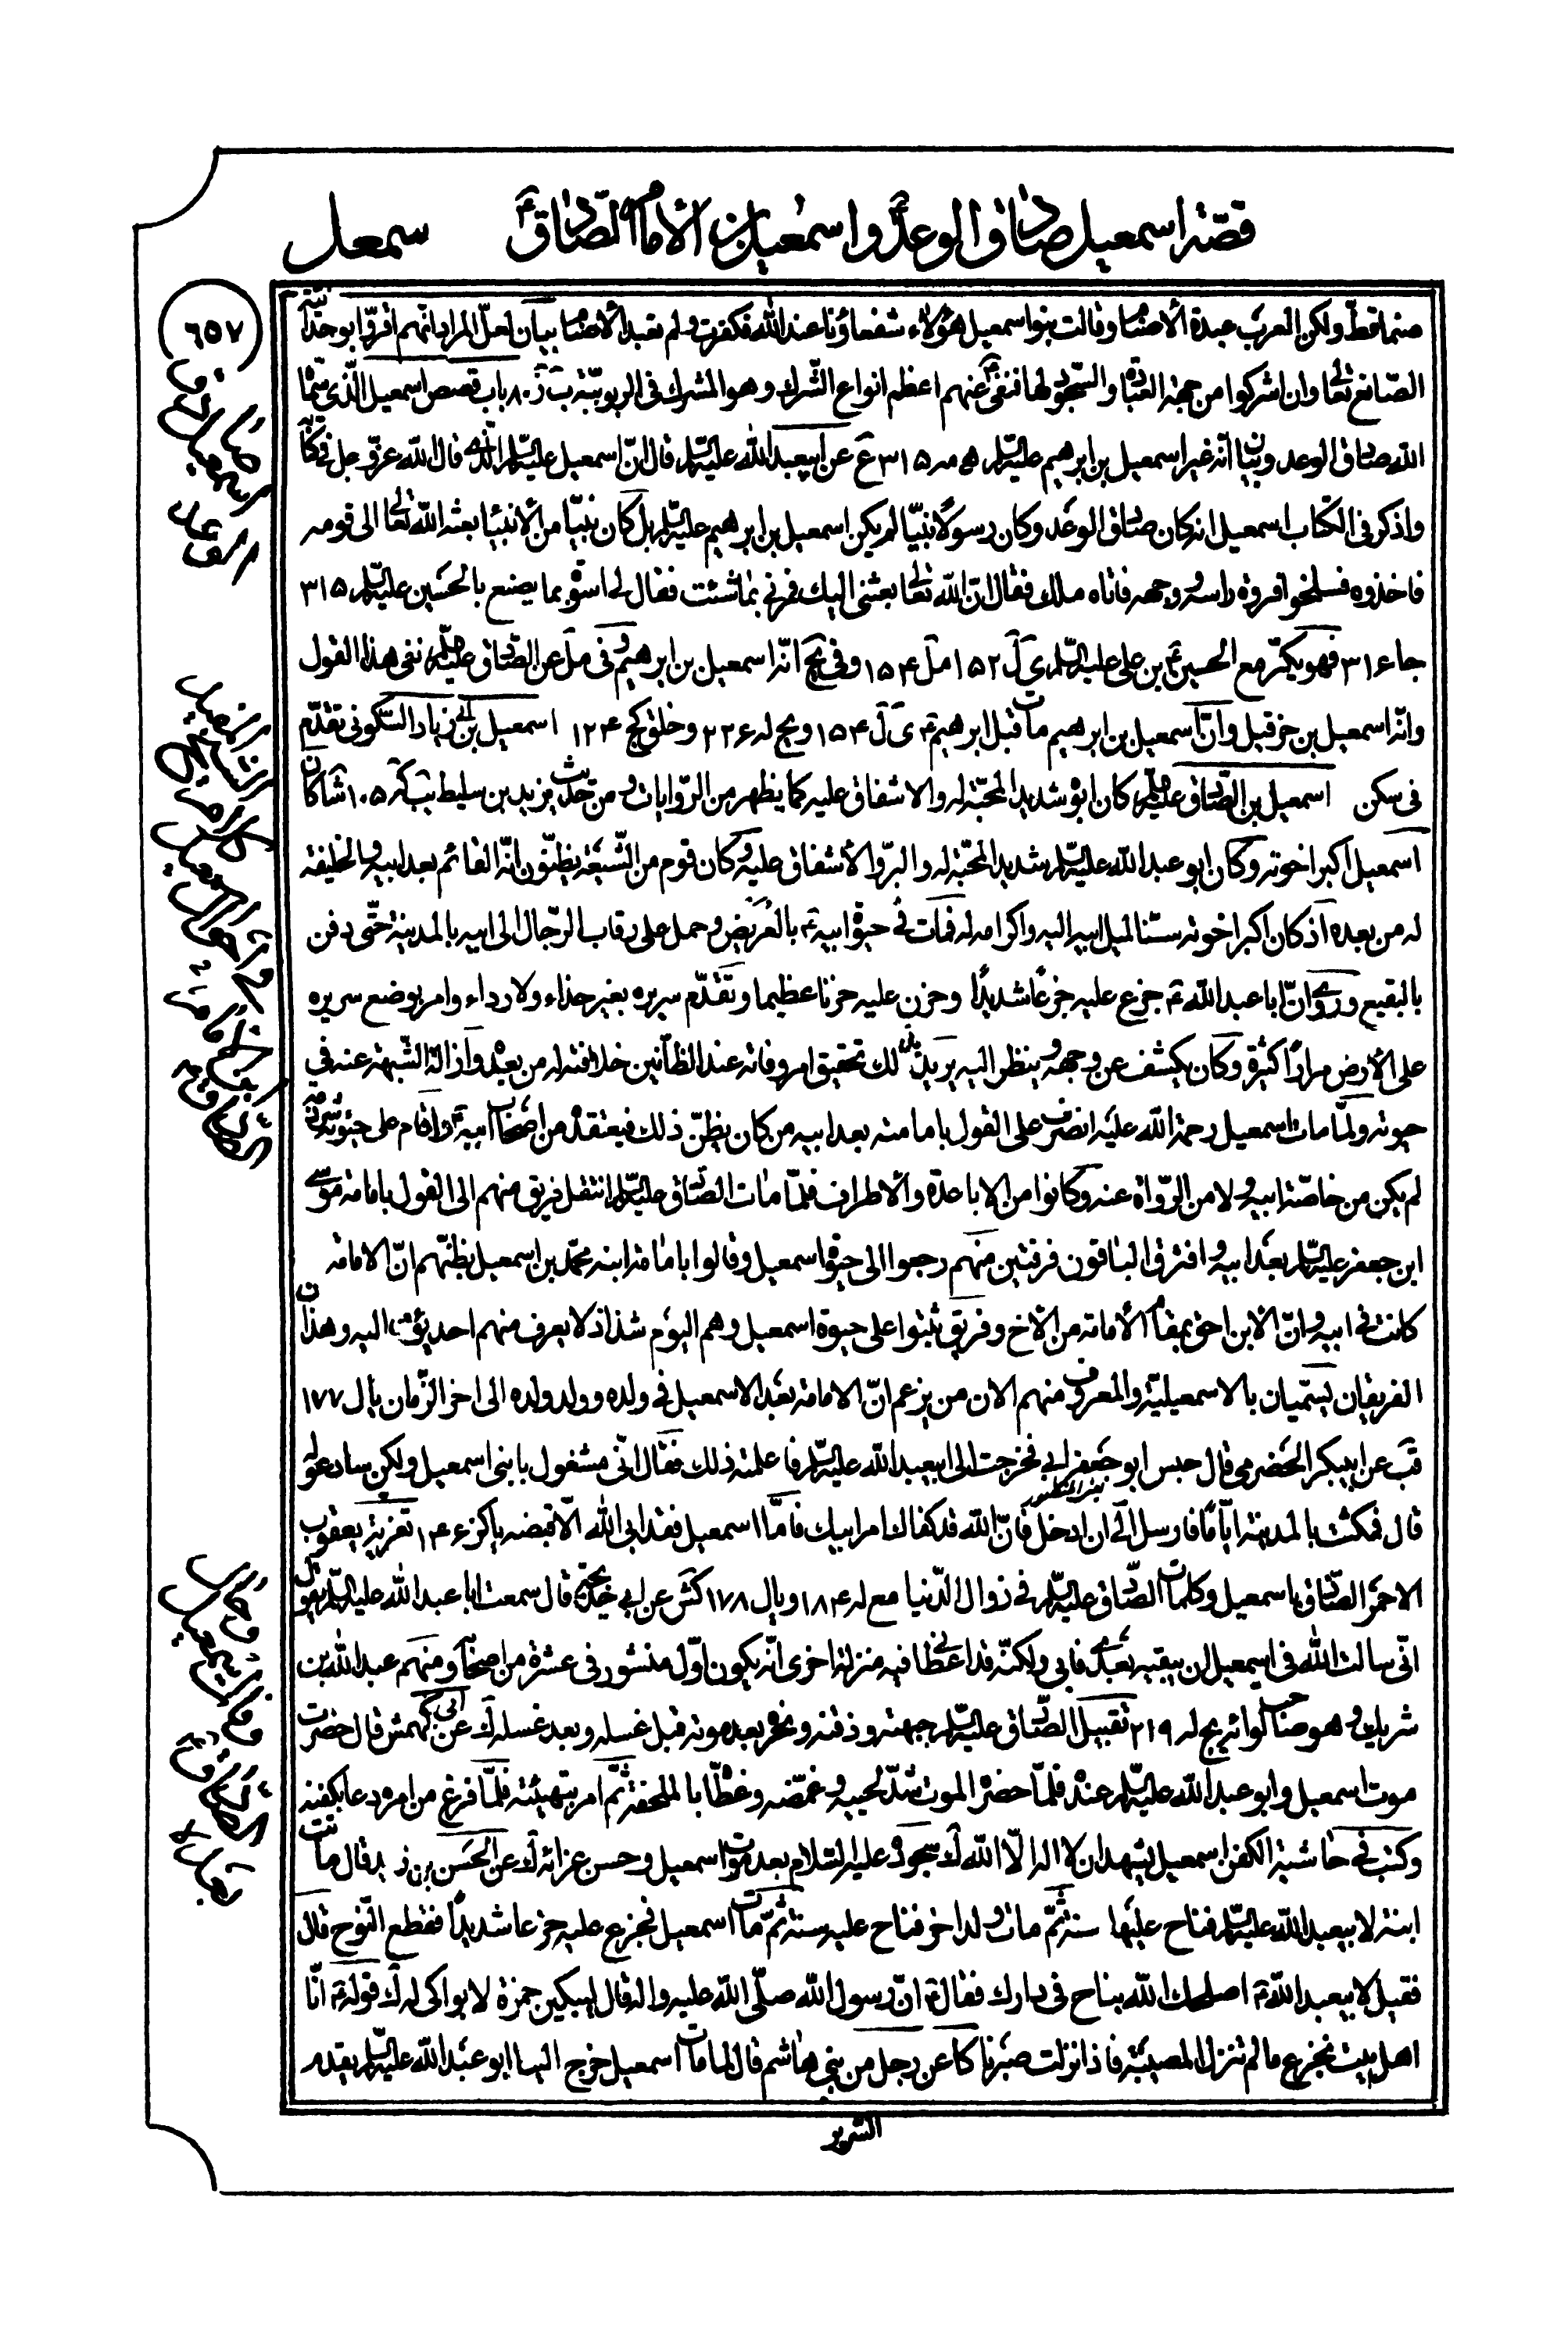 قصّة اسمعيل صادق الوعد واسمعيل بن الامام الصّادق ع
سمعل
٦٥٧
صنما قطّ ولكن العرب عبدة الأصنام وقالت بنو اسمعيل هؤلاء شفعاؤنا عند الله فكفرت ولم تعبد الأصنام بيان لعلّ المراد انّهم اقرّوا بوحدانيّة
الصّانع تعالى وان اشركوا من جهة العبادة والسّجود لها فنفى ع عنهم اعظم انواع الشّرك وهو الشرك فى الربوبيّة ٨٠ باب قصص اسمعيل الّذى سمّاه
الله صادق الوعد وبيان انّه غير اسمعيل بن ابرهيم عليه السّلم ٣١٥ ع عن ابيعبد الله عليه السّلم قال انّ اسمعيل عليه السّلم الّذى قال الله عزّ وجلّ فى كتابه
واذكر فى الكتاب اسمعيل انه كان صادق الوعد وكان رسولًا نبيّا لم يكن اسمعيل بن ابرهيم عليه السّلم بل كان نبيّا من الأنبيا بعثه الله تعالى الى قومه
فاخذوه فسلخوا فروة راسه ووجهه فاتاه ملك فقال انّ الله تعالى بعثنى اليك فمرنى بما شئت فقال لى اسوة بما يصنع بالحسين عليه السّلم ٣١٥
جا ٣١۶ فهو يكرّ مع الحسين بن على عليه السّلم ١٥٢ ١٥۴ وفى انّه اسمعيل بن ابرهيم وفى عن الصّادق عليه السّلم نفى هذا القول
وانّه اسمعيل بن حزقيل وانّ اسمعيل بن ابرهيم مات قبل ابرهيم ع ١٥۴ ويج له ٢٢۶ وخلق كج ١٢۴ اسمعيل بن ابى زياد السّكونى تقدّم
فى سكن اسمعيل بن الصّادق عليه السّلم كان ابوه شديد المحبّة له والاشفاق عليه كما يظهر من الرّوايات ومن حديث يزيد بن سليط ١٠٥ شا كان
اسمعيل اكبر اخوته وكان ابو عبد الله عليه السّلم شديد المحبّة له والبرّ والأشفاق عليه وكان قوم من الشّيعة يظنّون انّه القائم بعد ابيه والخليفة
له من بعده اذ كان اكبر اخوته سنّا لميل ابيه اليه واكرامه له فمات فى حيوة ابيه ع بالعريض وحمل على رقاب الرّجال الى ابيه بالمدينة حتّى دفن
بالبقيع وروى انّ ابا عبد الله ع جزع عليه جزعًا شديدًا وحزن عليه حزنا عظيما وتقدّم سريره بغير حذاء ولا رداء وامر بوضع سريره
على الأرض مرارًا كثيرة وكان يكشف عن وجهه وينظر اليه يريد بذلك تحقيق امر وفاته عند الظانّين خلافته له من بعده وازالة الشّبهة عنه فى
حيوته ولمّا مات اسمعيل رحمة الله عليه انصرف على القول بامامته بعد ابيه من كان يظنّ ذلك فيعتقده من اصحاب ابيه ع واقام على حيوته شرذمة
لم يكن من خاصّة ابيه ولا من الرّواة عنه وكانوا من الاباعدة والأطراف فلمّا مات الصّادق عليه السّلم انتقل فريق منهم الى القول بامامة موسى
ابن جعفر عليه السّلم بعد ابيه وافترق الباقون فرقتين منهم رجعوا الى حيوة اسمعيل وقالوا بامامة ابنه محمّد بن اسمعيل بظنّهم انّ الامامة
كانت فى ابيه وانّ الابن احق بمقام الأمامة من الأخ وفريق ثبتوا على حيوة اسمعيل وهم اليوم شذاذ لا يعرف منهم احد يؤمى اليه وهذان
الفريقان يسمّيان بالاسمعيليّة والمعروف منهم الان من يزعم انّ الامامة بعد الاسمعيل فى ولده وولد ولده الى اخر الزّمان يا ل ١٧٧
قب عن ابيبكر الحضرمى قال حبس ابو جعفر ابى فخرجت الى ابيعبد الله عليه السّلم فاعلمته ذلك فقال انّى مشغول بابنى اسمعيل ولكن سادعو له
يعنى المنصور
قال فمكثت بالمدينة ايّامًا فارسل الىّ ان ادخل فانّ الله قد كفاك امر ابيك فامّا اسمعيل فقد ابى الله الّا قبضه يا كز ١۴۶ تعزية يعقوب
الاحمر الصّادق باسمعيل وكلمات الصّادق عليه السّلم فى زوال الدّنيا مع له ١٨۴ ويا ل ١٧٨ كش عن ابى خديجة قال سمعت ابا عبد الله عليه السّلم يقول
انّى سالت الله فى اسمعيل ان يبقيه بعدى فابى ولكنّه قد اعطانى فيه منزلة اخرى انّه يكون اوّل منشور فى عشرة من اصحابه ومنهم عبد الله بن
شريك وهو صاحب لوائه يج له ٢١٩ تقبيل الصّادق عليه السّلم جبهته وذقنه ونحره بعد موته قبل غسله وبعد غسله ك عن ابى كهمش قال حضرت
موت اسمعيل وابو عبد الله عليه السّلم عنده فلمّا حضره الموت شدّ لحييه وغمّضه وغطّاه بالملحفة ثمّ امر بتهيئته فلمّا فرغ من امره دعا بكفنه
وكتب فى حاشية الكفن اسمعيل يشهد ان لا اله الّا الله ك سجوده عليه السّلام بعد موت اسمعيل وحسن عزائه ك عن الحسن بن زيد قال ماتت
ابنة لابيعبد الله عليه السّلم فناح عليها سنة ثمّ مات له ولد اخر فناح عليه سنة ثمّ مات اسمعيل فجزع عليه جزعا شديدًا فقطع النّوح قال
فقيل لابيعبد الله ع اصلحك الله يناح فى دارك فقال ع انّ رسول الله صلّى الله عليه واله قال ليبكين حمزة لا بواكى له ك قوله ع انّا
اهل بيت نجزع ما لم تنزل المصيبة فاذا نزلت صبرنا كا عن رجل من بنى هاشم قال لما مات اسمعيل خرج الينا ابو عبد الله عليه السّلم يقدم
السّرير